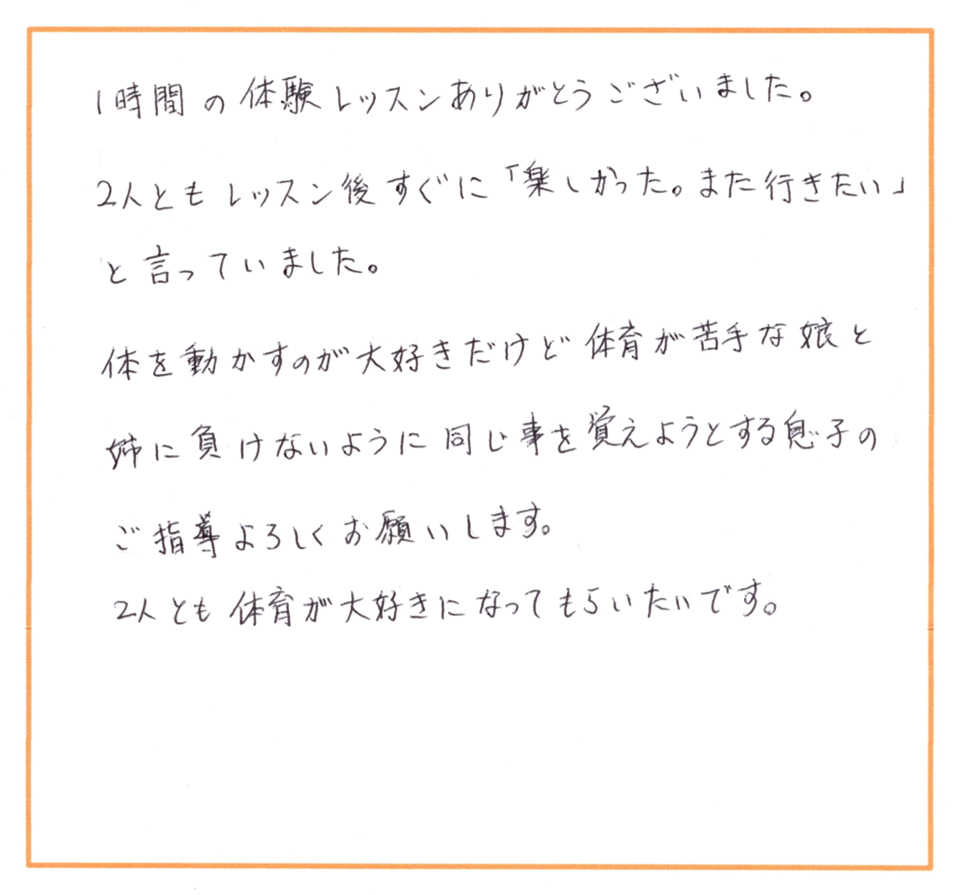 1時間の体験レッスンありがとうございました。
2人ともレッスン後すぐに「楽しかった。また行きたい」
と言っていました。
体を動かすのが大好きだけど体育が苦手な娘と
姉に負けないように同じ事を覚えようとする息子の
ご指導よろしくお願いします。
2人とも体育が大好きになってもらいたいです。